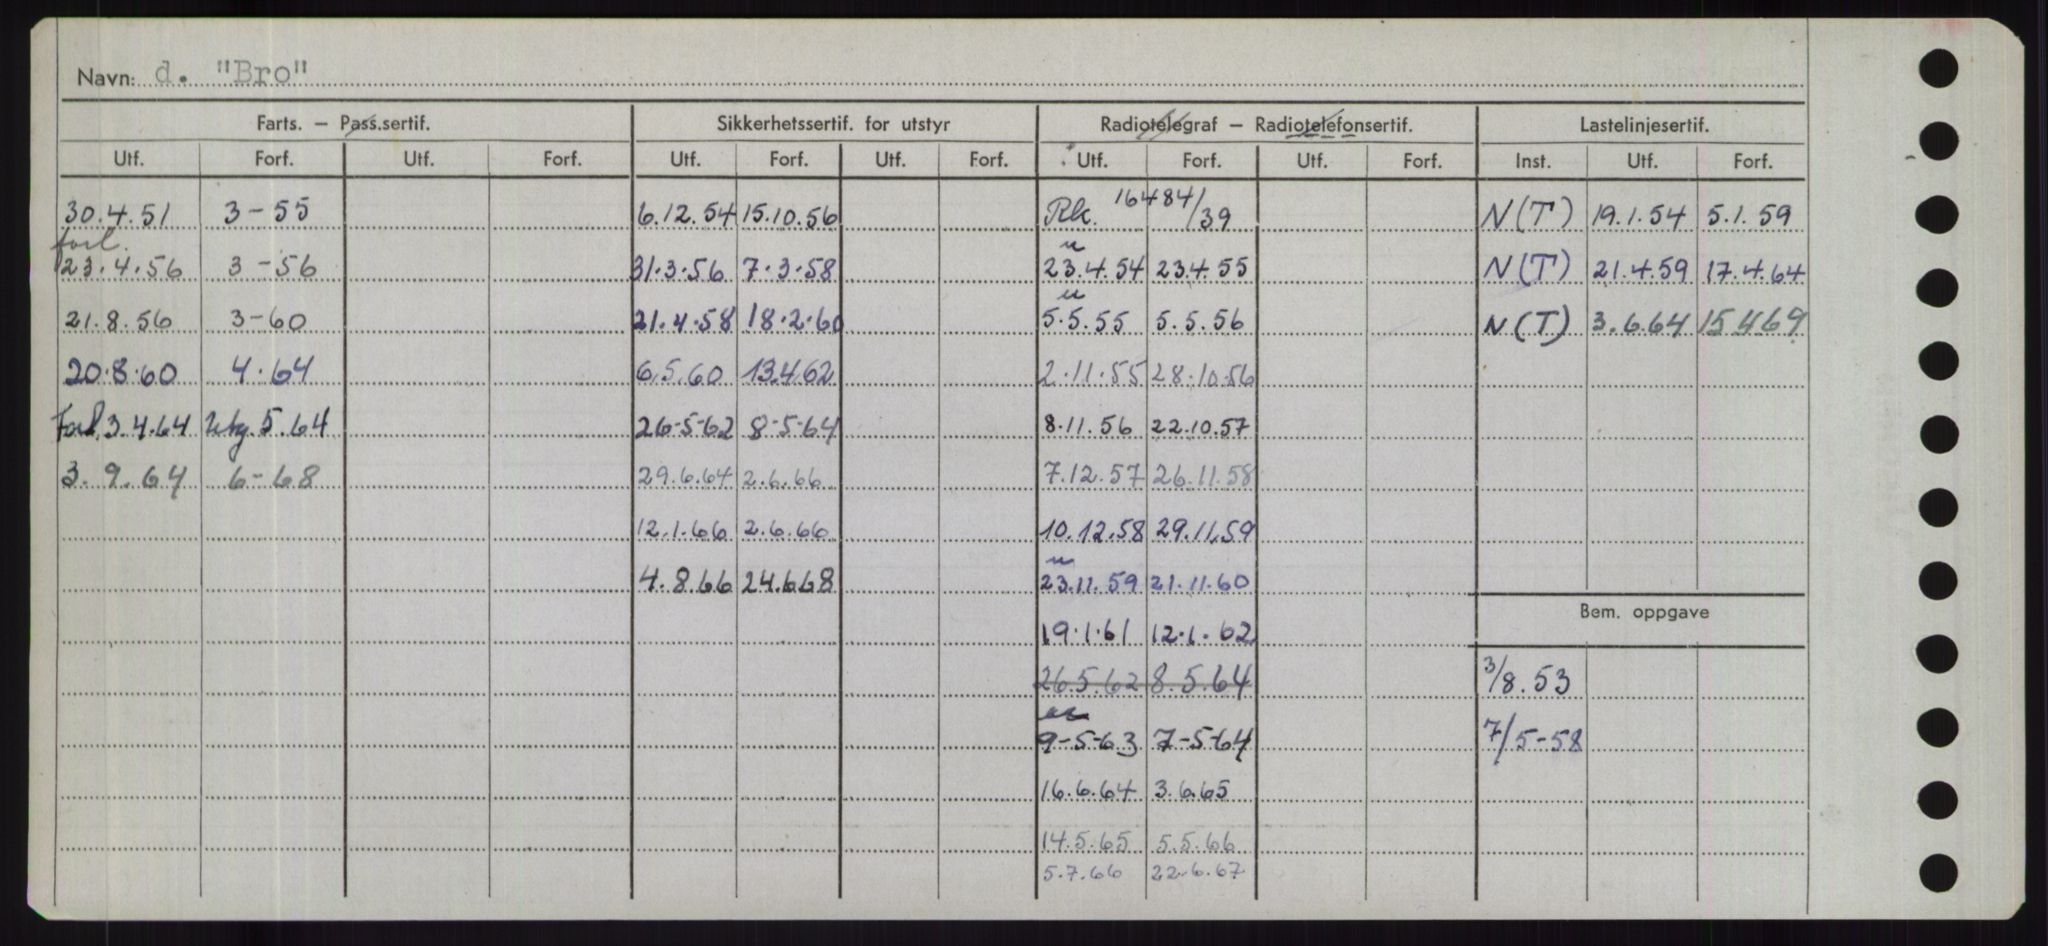 Navn: d. "Bro"
Farts. — Pass.sertif. Sikkerhetssertif. for utstyr Radiotelegraf — Radiotelefonsertif. Lastelinjesertif.
Utf. Forf. Utf. Forf. Utf. Forf. Utf. Forf. Utf. Forf. Utf. Forf. Inst. Utf. Forf.
30.4.51 3-55 6.12.54 15.10.56 Rk. 16484/39 N(T) 19.1.54 5.1.59
forl. u
23.4.56 3-56 31.3.56 7.3.58 23.4.54 23.4.55 N(T) 21.4.59 17.4.64
u
21.8.56 3-60 21.4.58 18.2.60 5.5.55 5.5.56 N(T) 3.6.64 15.4.69
20.8.60 4.64 6.5.60 13.4.62 2.11.55 28.10.56
Forl. 3.4.64 Utg. 5.64 26-5-62 8-5-64 8.11.56 22.10.57
3.9.64 6-68 29.6.64 2.6.66 7.12.57 26.11.58
12.1.66 2.6.66 10.12.58 29.11.59
u
4.8.66 24.6.68 23.11.59 21.11.60
Bem. oppgave
19.1.61 12.1.62
26.5.62 8.5.64 3/8.53
9-5-63 7-5-64 7/5-58
16.6.64 3.6.65
14.5.65 5.5.66
5.7.66 22.6.67